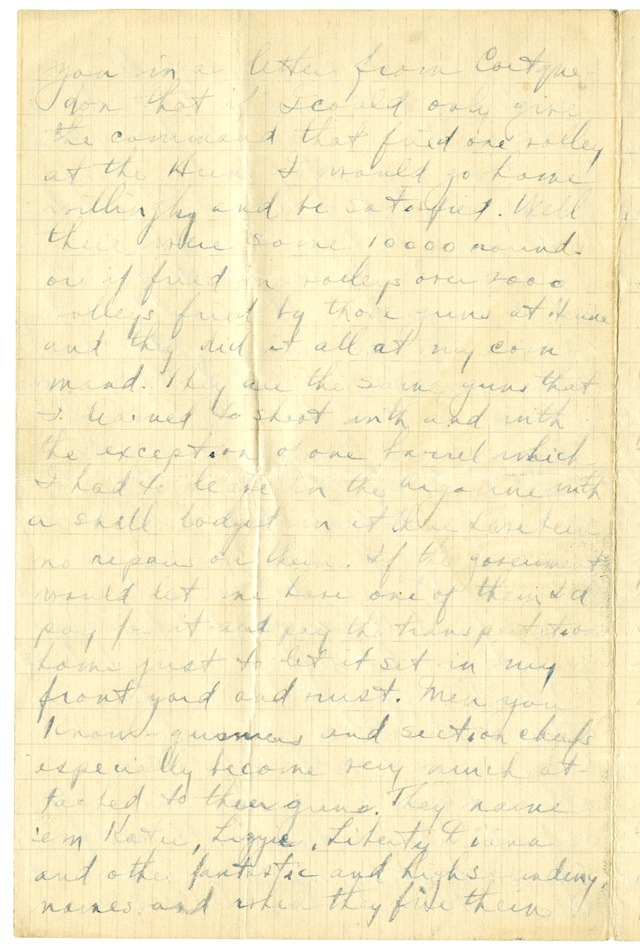 you in a letter from Coetque
don that if I could only give
the command that fired one volley
at the Hun I would go home
willingly and be satisfied. Well
there were some 10000 rounds
or if fired in volleys over 2000
volleys fired by those guns at Huns
and they did it all at my com
mand. They are the same guns that
I learned to shoot with and with
the exception of one barrel which
I had to leave in the Argonne with
a shell lodged in it there have been
no repairs on them. If the government
would let me have one of them I'd
pay for it and pay the transportation
home just to let it set in my
front yard and rust. Men you
know - gunners and section chiefs
especially become very much at-
tached to their guns. They name
'em Katie, Lizzie, Liberty Diana
and other fantastic and highsounding
names and when they fire them